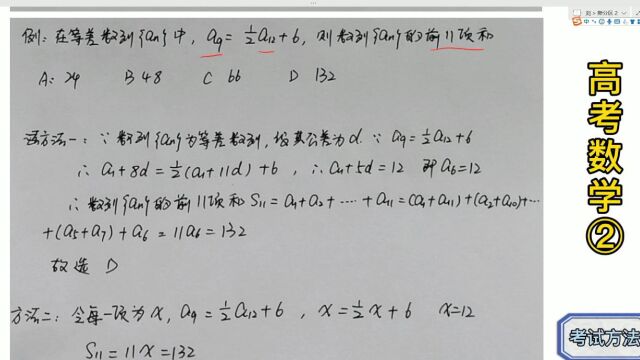 例：在等差数列{an}中，a9=½a12+6，则数列{an}的前11项和
A：24 B 48 C 66 D 132
法方法一：∵数列{an}为等差数列，设其公差为d ∵ a9=½a12+6
∴ a1+8d=½(a1+11d)+6，∴a1+5d=12 即a6=12
∴数列{an}的前11项和 S11=a1+a2+……+a11=(a1+a11)+(a2+a10)+…
+(a5+a7)+a6=11a6=132
故选 D
方法二：令每一项为x，a9=½a12+6，x=½x+6 x=12
S11=11x=132
高考数学②
考试方法